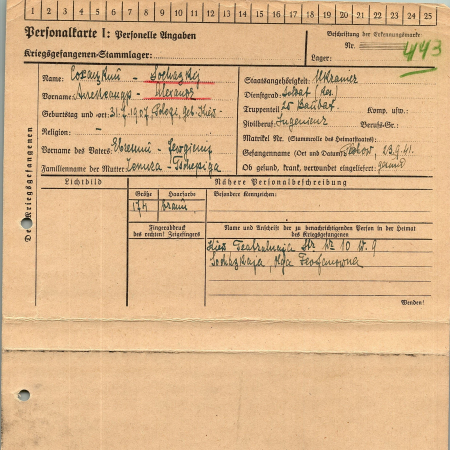 1 2 3 4 5 6 7 8 9 10 11 12 13 14 15 16 17 18 19 20 21 22 23 24 25
Personalkarte I: Personelle Angaben
Kriegsgefangenen-Stammlager:
Beschriftung der Erkennungsmarke
Nr. 443
Lager:
Des Kriegsgefangenen
Name: Sochazkij
Vorname:
Geburtstag und -ort: 31.7.1907 Geb. Kiew
Religion: –
Vorname des Vaters: Евгений - Jewgienij
Familienname der Mutter:
Staatsangehörigkeit: Ukrainer
Dienstgrad: Soldat
Truppenteil: 25 Baubat. Komp. usw.:
Zivilberuf: Ingenieur Berufs-Gr.:
Matrikel Nr. (Stammrolle des Heimatstaates):
Gefangennahme (Ort und Datum): 23.9.41.
Ob gesund, krank, verwundet eingeliefert: gesund
Lichtbild
Nähere Personalbeschreibung
Größe Haarfarbe Besondere Kennzeichen:
174 braun
Fingerabdruck
des rechten! Zeigefingers
Name und Anschrift der zu benachrichtigenden Person in der Heimat
des Kriegsgefangenen
Kiew Teatralnaja Str. Nr 10 W. 9
Sochazkaja, Olga Feofanowna
Wenden!